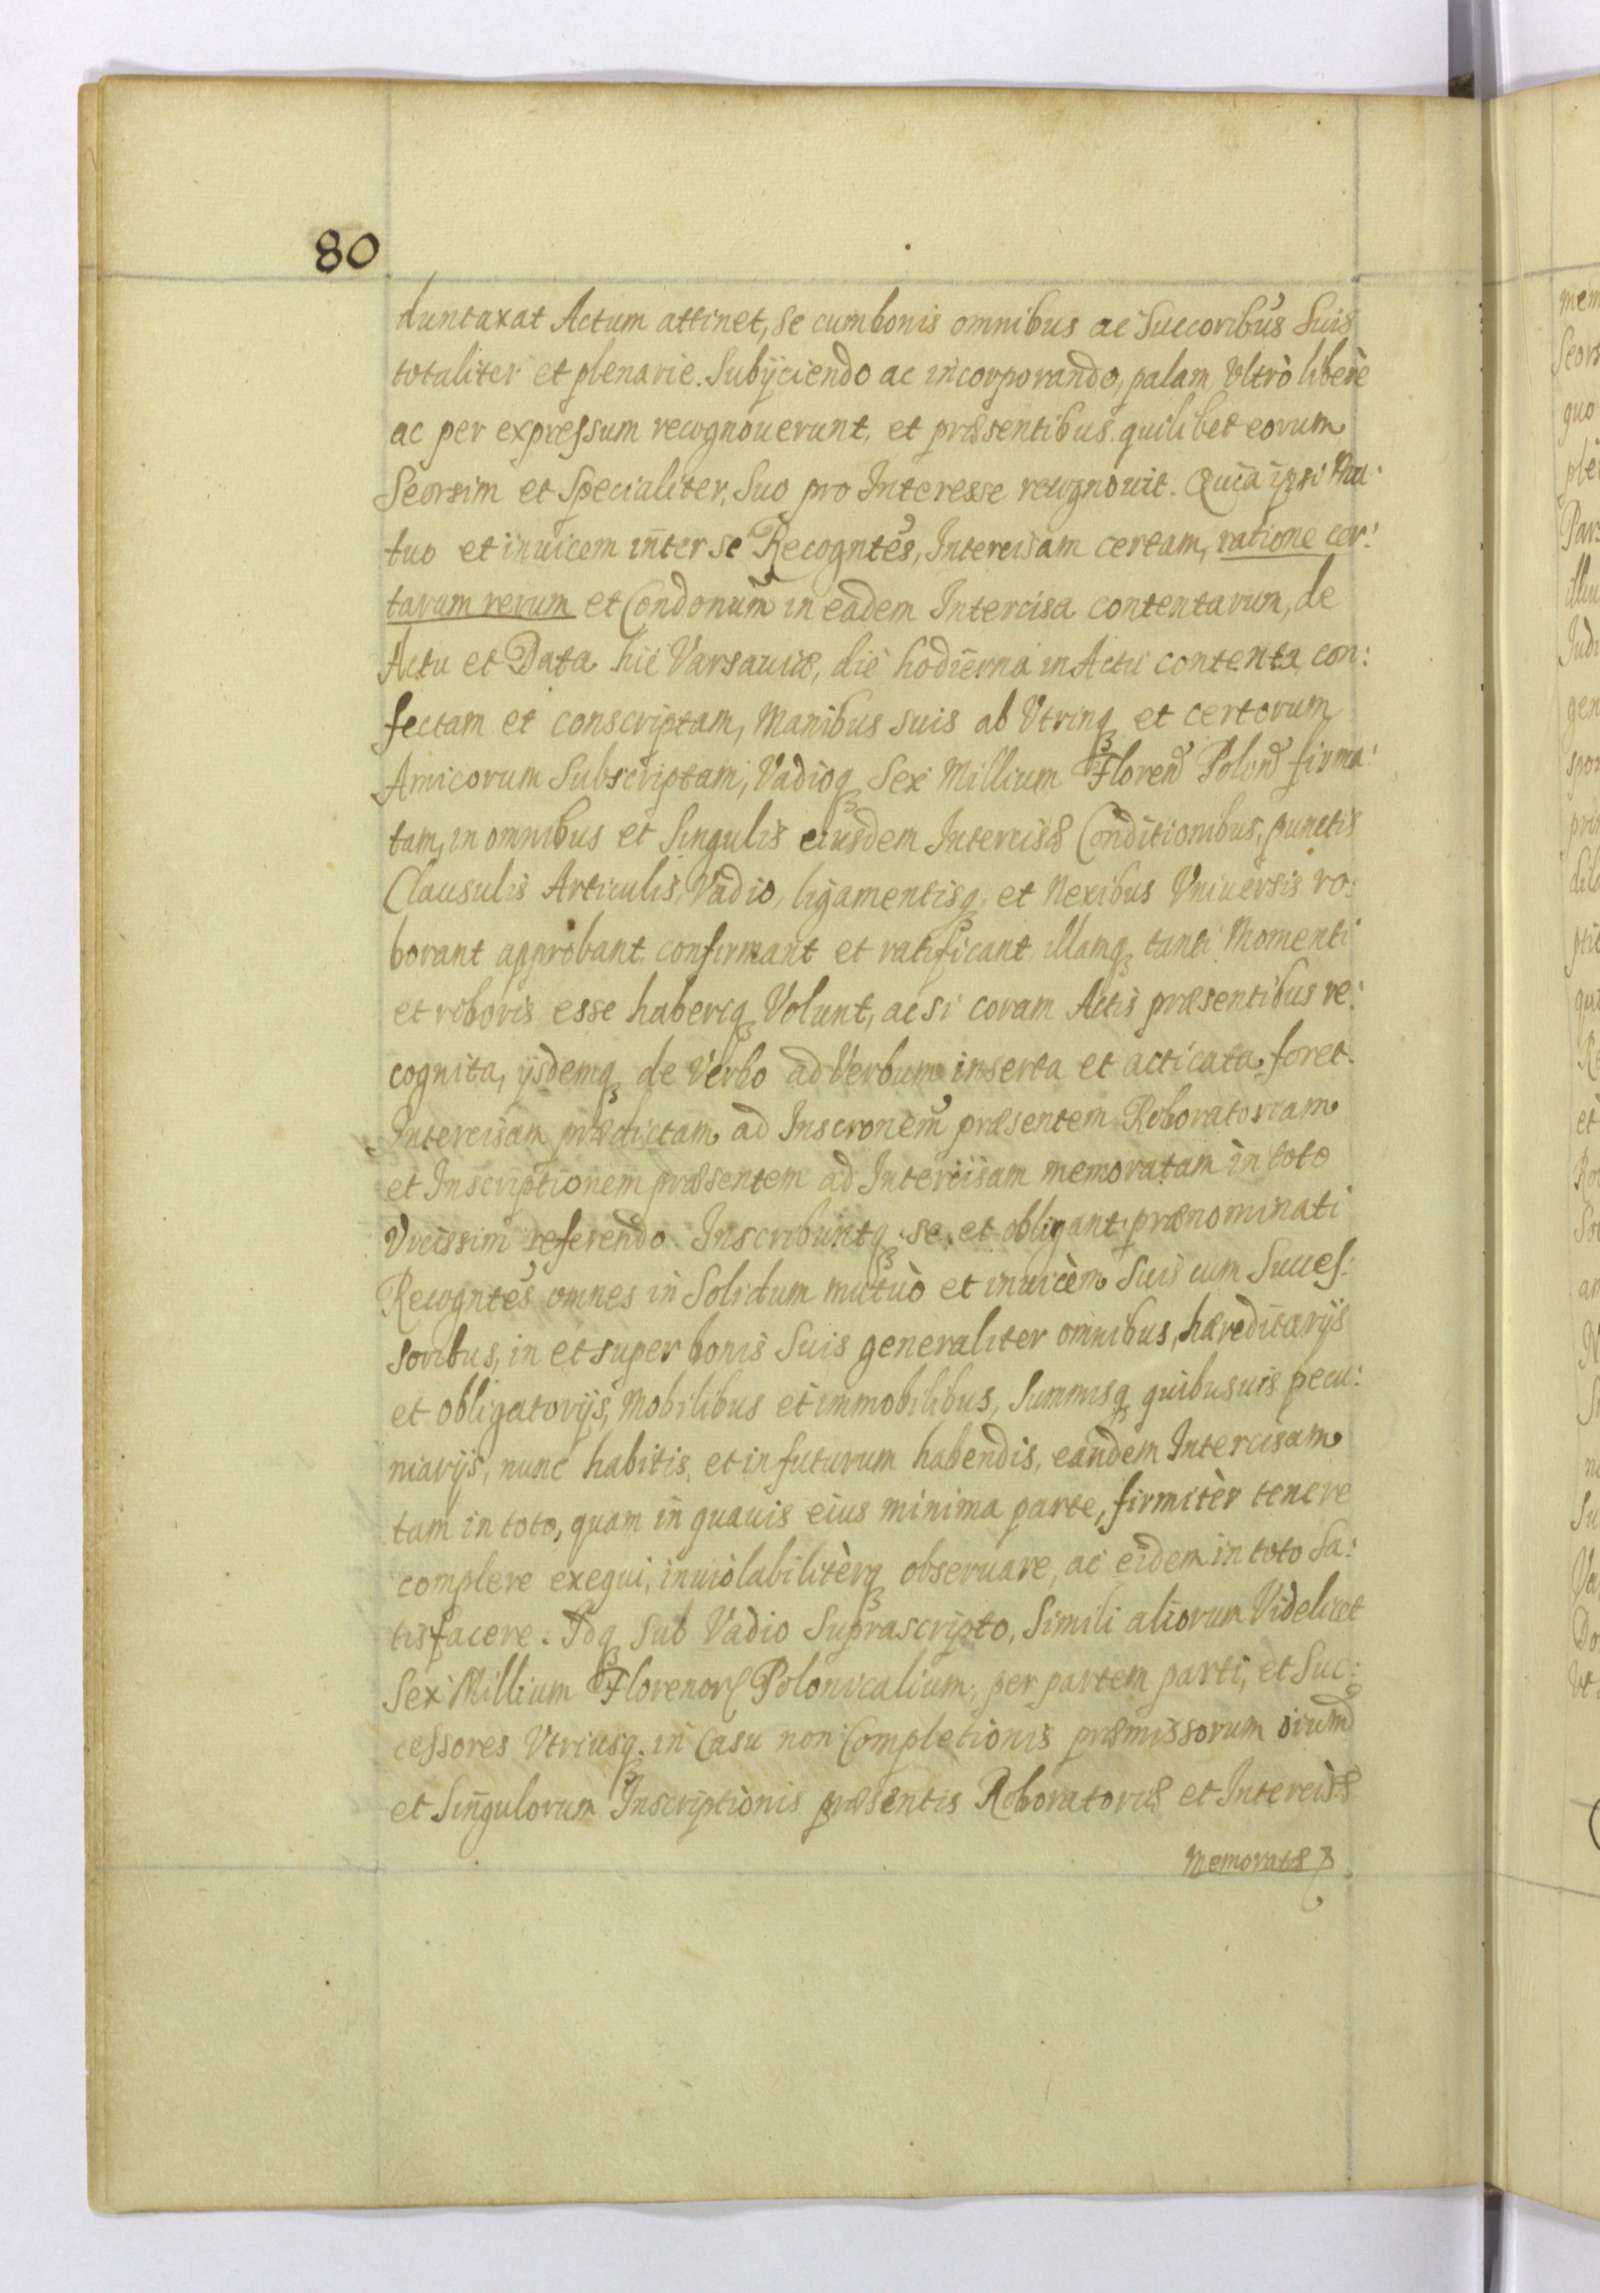 80
duntaxat Actum attinet, se cum bonis omnibus ac Succoribus Suis
totaliter et plenarie Subijciendo ac incorporando, palam Vltrò liberè
ac per expressum recognouerunt, et præsentibus quilibet eorum
Seorsim et Specialiter, Suo pro Interesse recognouit. Quia ipsi Mu:
tuo et inuicem inter se Recogntes, Intercisam certam, ratione cer:
tarum rerum et Condonum in eadem Intercisa contentarum, de
Actu et Data hic Varsauiæ, die hodierna in Actu contenta con:
fectam et conscriptam, Manibus suis ab Vtrinq et certorum
Amicorum Subscriptam, Vadioq Sex Millium Floren Polon firma:
tam, in omnibus et Singulis eiusdem Intercisæ Conditionibus, punctis
Clausulis Articulis, Vadio, ligamentisq, et Nexibus Vniuersis ro:
borant approbant confirmant et ratificant illamq tanti Momenti
et roboris esse haberiq Volunt, ac si coram Actis præsentibus re:
cognita, ijsdemq de Verbo ad Verbum inserta et acticata foret.
Intercisam prædictam ad Inscronem præsentem Roboratoriam
et Inscriptionem præsentem ad Intercisam memoratam in toto
Vicissim referendo. Inscribuntq se et obligant prænominati
Recogntes omnes in Solidum mutuò et inuicèm Suis cum Succes:
soribus, in et super bonis Suis generaliter omnibus, hæreditarijs
et obligatorijs, Mobilibus et immobilibus, Summisq quibusuis pecu:
niarijs, nunc habitis, et in futurum habendis, eandem Intercisam
tam in toto, quam in quauis eius minima parte, firmitèr tenere
complere exequi, inuiolabilitèrq obseruare, ac eidem in toto Sa:
tisfacere. Idq Sub Vadio Suprascripto, Simili aliorum Videlicet
Sex Millium Florenor Polonicalium, per partem parti, et Suc:
cessores Vtriusq in Casu non Completionis præmissorum oium
et Singulorum Inscriptionis præsentis Roboratoriæ et Intercisæ
Memoratæ